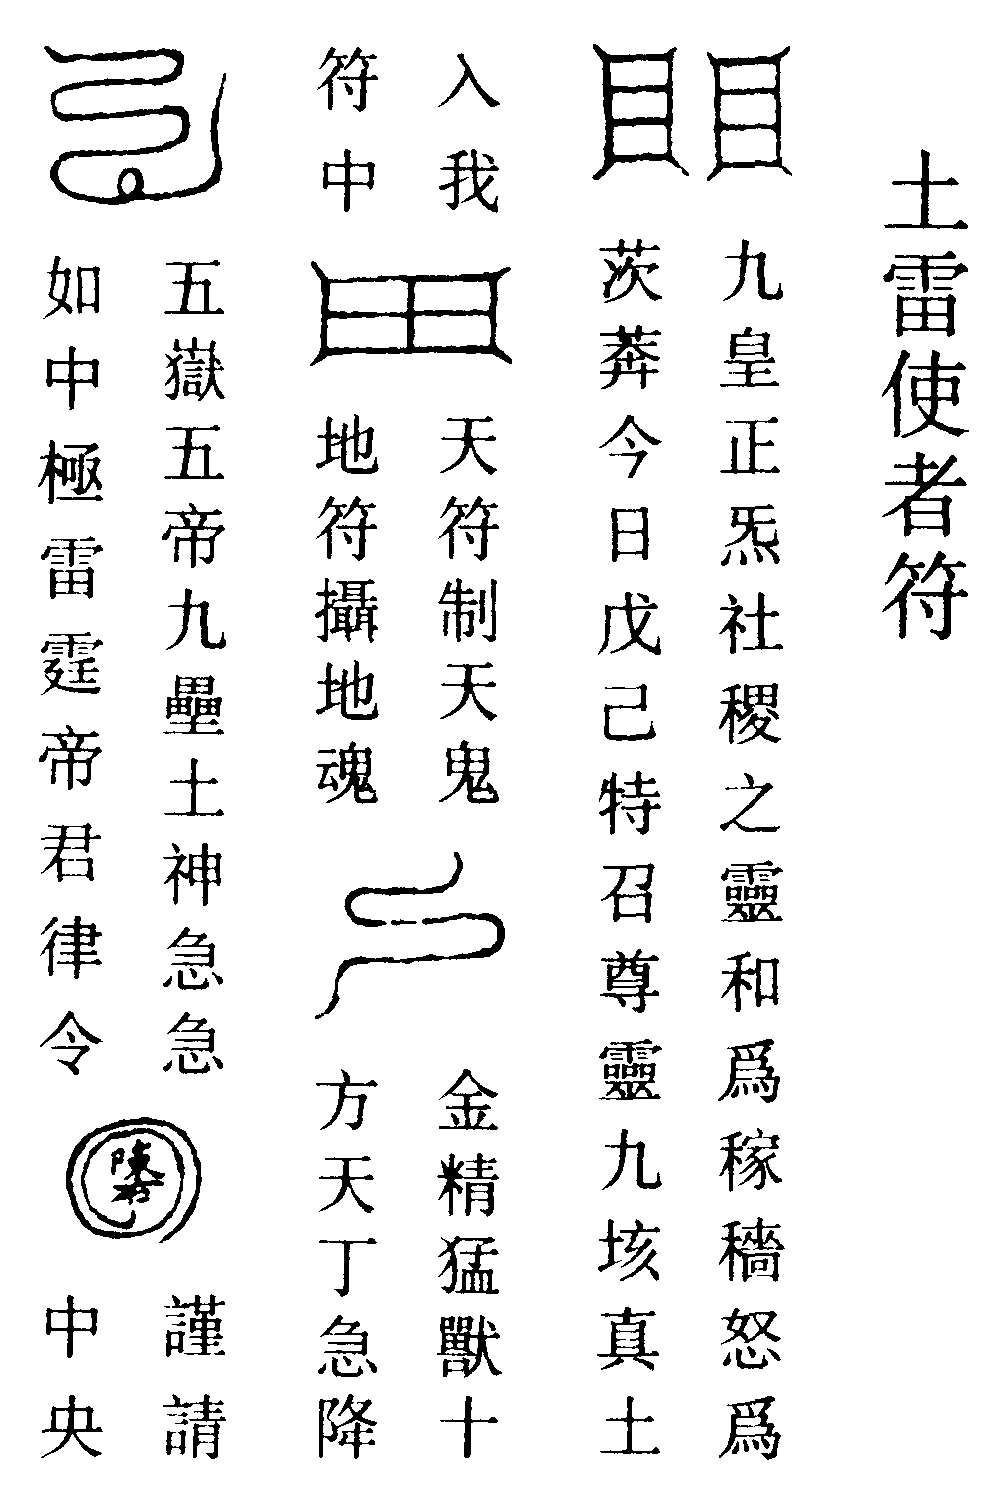 土雷使者符
九皇正炁社稷之靈和爲稼穡怒爲
茨莾今日戊己特召尊靈九垓真土
入我
符中
天符制天鬼
地符攝地魂
金精猛獸十
方天丁急降
五嶽五帝九壘土神急急
如中極雷霆帝君律令
謹請
中央